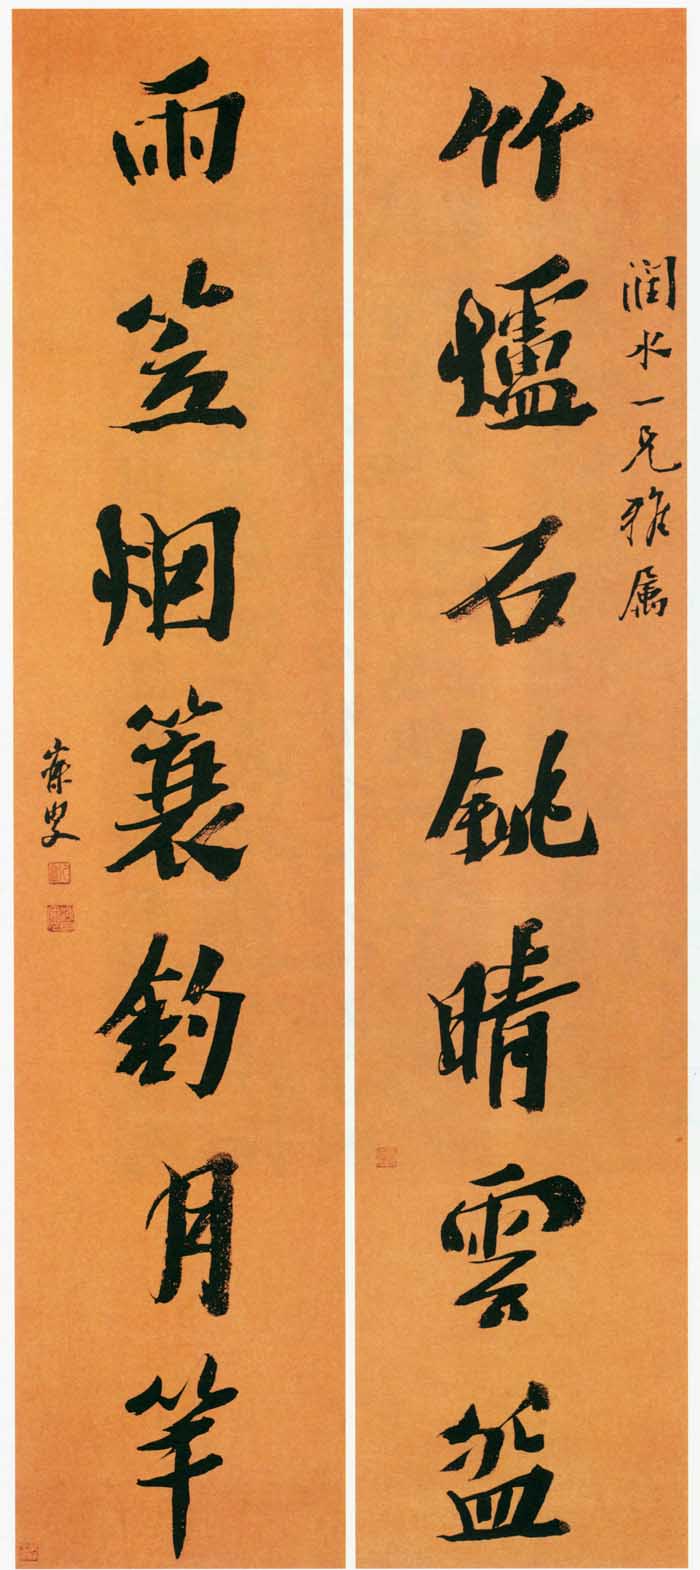 潤水一兄雅属
竹爐石銚晴雲盌
雨笠烟簑釣月竿
寐叟